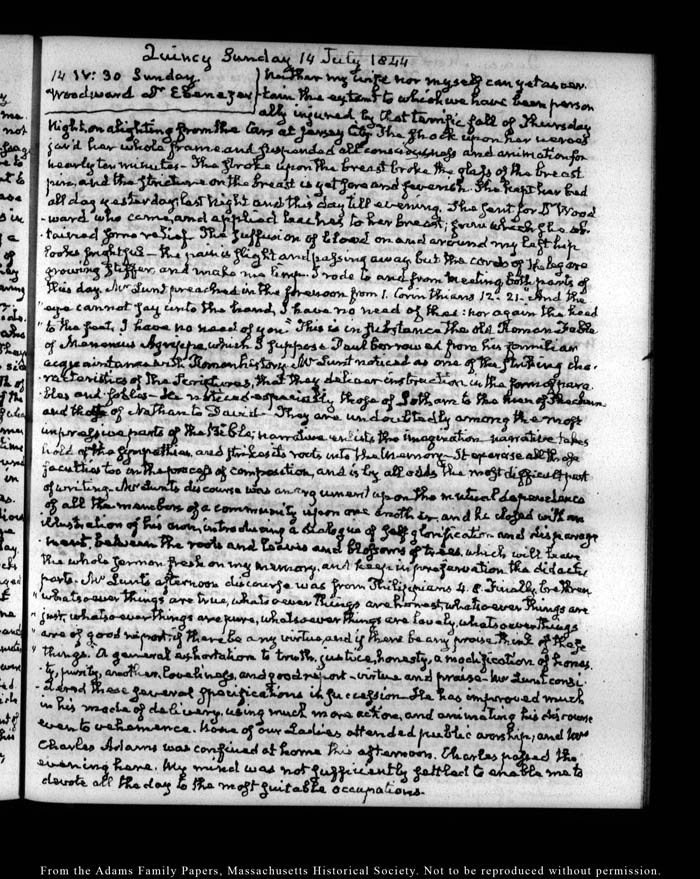 Quincy Sunday 14 July 1844
14 IV:30 Sunday
Woodward Dr Ebenezer
Neither my wife nor myself can yet ascer-
tain the extent to which we have been person
ally injured by that terrific fall of Thursday
Night, on alighting from the Cars at Jersey City. The shock upon her nerves
jar'd her whole frame and suspended all consciousness and animation for
nearly ten minutes - The stroke upon the breast broke the glass of the breast
pin, and the stricture on the breast is yet sore and feverish. She kept her bed
all day yesterday, last Night and this day till evening. She sent for Dr Wood
-ward who came, and applied leaches to her breast; from which she ob-
-tained some relief. The suffusion of blood on and around my left hip
looks frightful - the pain is slight and passing away but the cords of the leg are
growing stiffer, and make me limp. I rode to and from Meeting both parts of
this day. Mr Lunt preached in the forenoon from 1. Corinthians 12. 21. And the
"eye cannot say unto the hand, I have no need of thee: nor again the head
"to the feet, I have no need of you." This is in substance the old Roman Fable
of Menenius Agrippa, which I suppose Paul borrowed from his familiar
acquaintance with Roman history. Mr Lunt noticed as one of the striking cha-
-racteristics of the Scriptures, that they deliver instruction in the form of para
-bles and fables - He noticed especially those of Jotham to the men of Shechem
and those of Nathan to David - They are undoubtedly among the most
impressive parts of the Bible; narrative enlists the imagination narrative takes
hold of the sympathies, and strikes its roots into the Memory - It exercises all those
faculties too in the process of composition, and is by all odds the most difficult part
of writing. Mr Lunt's discourse was an argument upon the mutual dependence
of all the members of a community upon one another, and he closed with an
illustration of his own, introducing a dialogue of self glorification and disparage
-ment, between the roots and leaves and blossoms of trees, which will leave
the whole sermon fresh on my memory, and keep in preservation the didactic
parts. Mr Lunt's afternoon discourse was from Philippians 4. 8. Finally, brethren
"whatsoever things are true, whatsoever things are honest, whatsoever things are
just, whatsoever things are pure, whatsoever things are lovely, whatsoever things
"are of good report; if there be any virtue, and if there be any praise, think of these
"things." A general exhortation to truth, justice, honesty, a modification of hones
-ty, purity, another, loveliness, and good report - virtue and praise - Mr Lunt consi
-dered these general specifications in succession. He has improved much
in his mode of delivery, using much more action, and animating his discourse
even to vehemence. None of our Ladies attended public worship, and Mrs
Charles Adams was confined at home this afternoon. Charles passed the
evening here. My mind was not sufficiently settled to enable me to
devote all the day to the most suitable occupations.
From the Adams Family Papers, Massachusetts Historical Society. Not to be reproduced without permission.